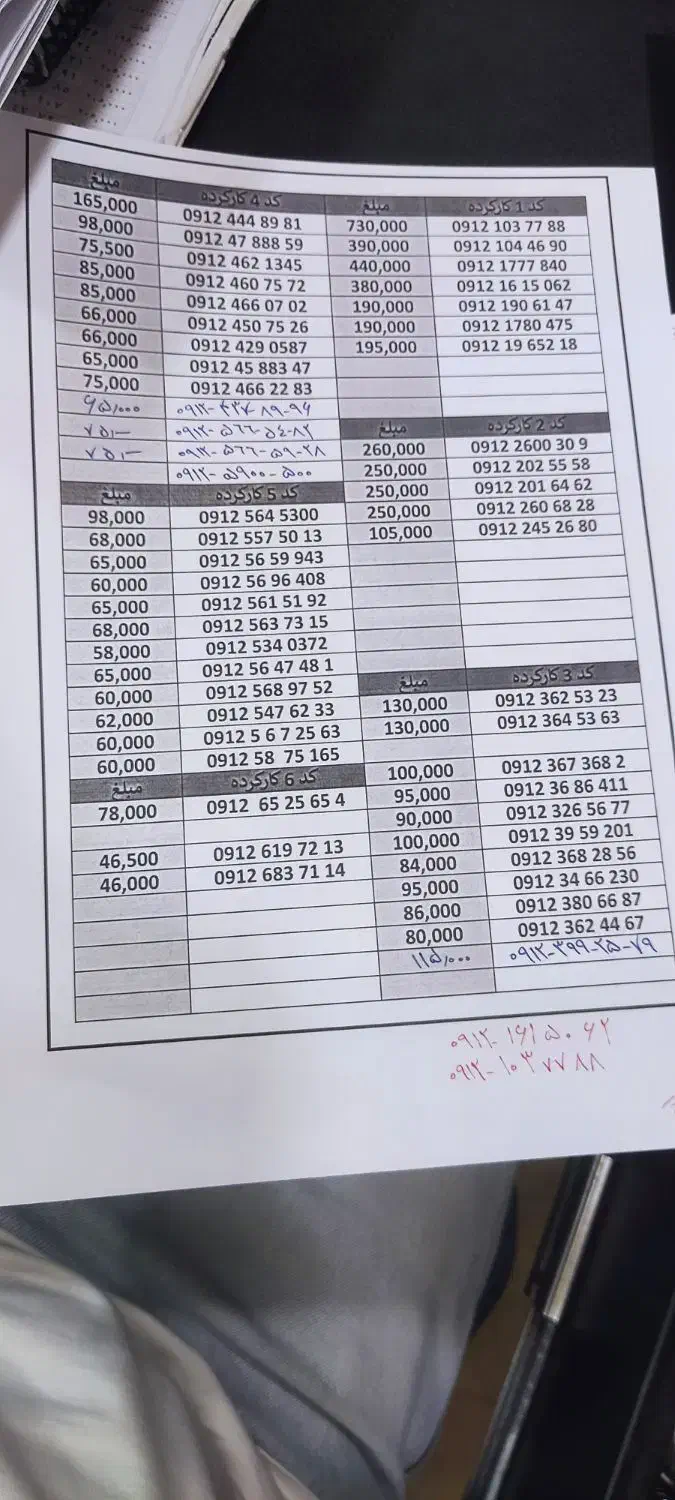 کد 1 کارکرده مبلغ
0912 103 77 88 730,000
0912 104 46 90 390,000
0912 1777 840 440,000
0912 16 15 062 380,000
0912 190 61 47 190,000
0912 1780 475 190,000
0912 19 652 18 195,000
کد 2 کارکرده مبلغ
0912 2600 30 9 260,000
0912 202 55 58 250,000
0912 201 64 62 250,000
0912 260 68 28 250,000
0912 245 26 80 105,000
کد 3 کارکرده مبلغ
0912 362 53 23 130,000
0912 364 53 63 130,000
0912 367 368 2 100,000
0912 36 86 411 95,000
0912 326 56 77 90,000
0912 39 59 201 100,000
0912 368 28 56 84,000
0912 34 66 230 95,000
0912 380 66 87 86,000
0912 362 44 67 80,000
۰۹۱۲-۳۹۹-۲۵-۷۹ ۱۱۵,۰۰۰
کد 4 کارکرده مبلغ
0912 444 89 81 165,000
0912 47 888 59 98,000
0912 462 1345 75,500
0912 460 75 72 85,000
0912 466 07 02 85,000
0912 450 75 26 66,000
0912 429 0587 66,000
0912 45 883 47 65,000
0912 466 22 83 75,000
۰۹۱۲-۴۳۷-۸۹-۹۶ ۶۵,۰۰۰
۰۹۱۲-۵۶۶-۵۴-۸۲ ۷۵,-
۰۹۱۲-۵۶۶-۵۹-۲۸ ۷۵,-
۰۹۱۲-۵۹۰۰-۵۰۰
کد 5 کارکرده مبلغ
0912 564 5300 98,000
0912 557 50 13 68,000
0912 56 59 943 65,000
0912 56 96 408 60,000
0912 561 51 92 65,000
0912 563 73 15 68,000
0912 534 0372 58,000
0912 56 47 48 1 65,000
0912 568 97 52 60,000
0912 547 62 33 62,000
0912 5 6 7 25 63 60,000
0912 58 75 165 60,000
کد 6 کارکرده مبلغ
0912 65 25 65 4 78,000
0912 619 72 13 46,500
0912 683 71 14 46,000
۰۹۱۲-۱۶۱۵۰۶۲
۰۹۱۲-۱۰۳۷۷۸۸